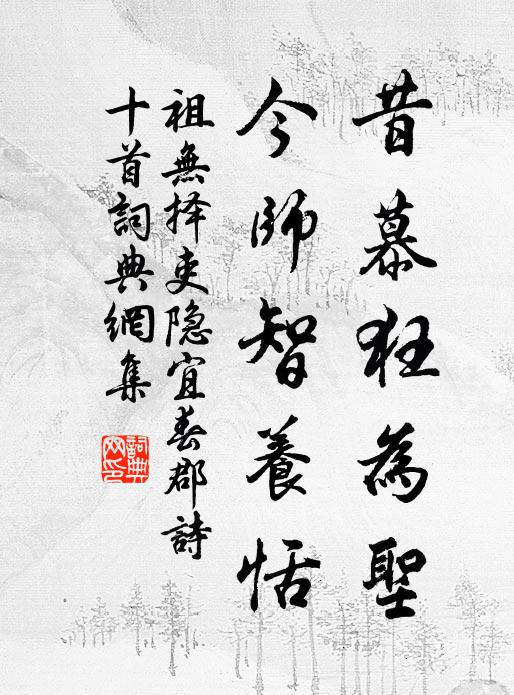 昔慕狂為聖
今師智養恬
祖無择吏隐宜春郡詩
十首詞典網集
詞典网印